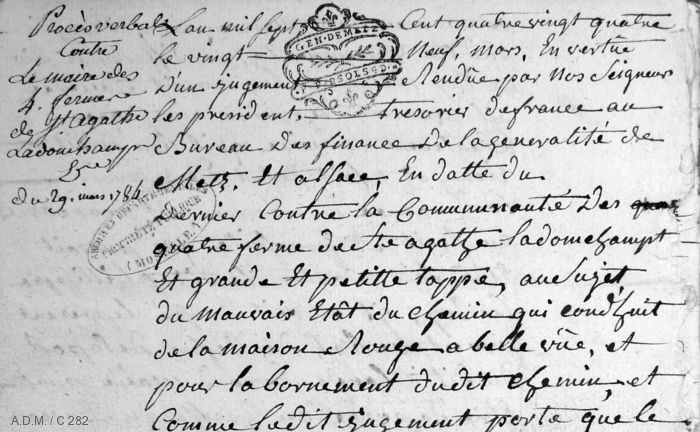 Procès verbal
Contre
Le maire des
4. fermes
de Ste Agathe
Ladonchamps
du 29. mars 1784
L'an mil sept Cent quatre vingt quatre
le vingt Neuf, Mars, En vertüe
D'un jugement Rendüe par Nos Seigneurs
les president. tresorier defrance au
Bureau Des finance De la generalité de
Metz. Et alsace, En datte du
Dernier Contre la Communauté Des
quatre ferme de Ste agathe ladonchampt
Et grande Et petitte tappe, au Sujet
du Mauvais Etât du Chemin qui conduit
de la maison Rouge a belle vüe, et
pour la bornement dudit Chemin, et
Comme ledit jugement porte que le
GEN. DE METZ
SOLS
ARCHIVES DEPARTEMENTALES
PROPRIÉTÉ PUBLIQUE
(MOSELLE)
A.D.M. / C 282